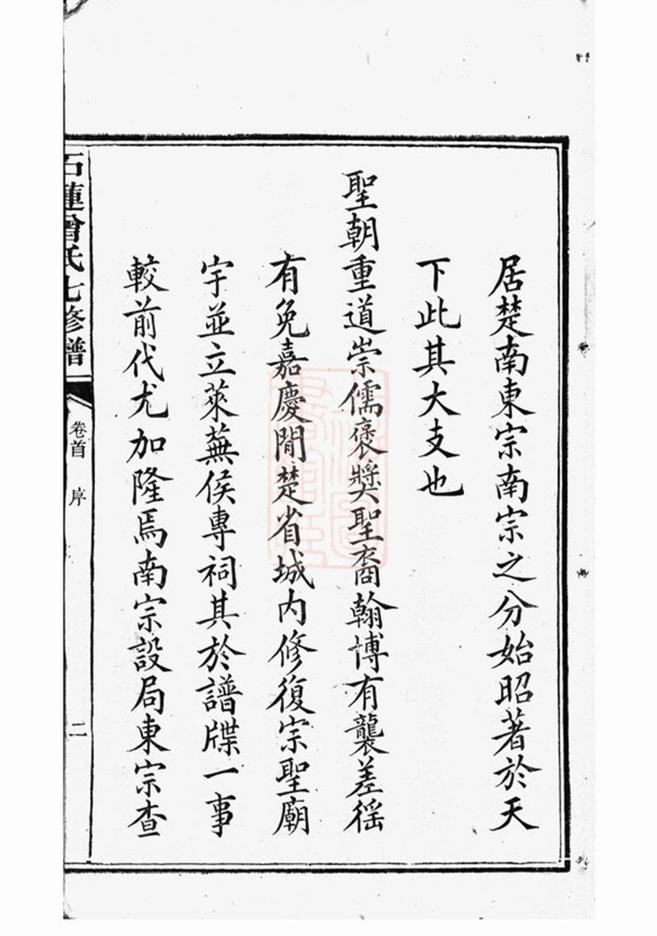 居楚南東宗南宗之分始昭著於天
下此其大支也
聖朝重道崇儒褒獎聖裔翰博有襲差徭
有免嘉慶間楚省城内修復宗聖廟
宇並立萊蕪侯專祠其於譜牒一事
較前代尤加隆焉南宗設局東宗查
石蓮曾氏七修譜
卷首 序
二